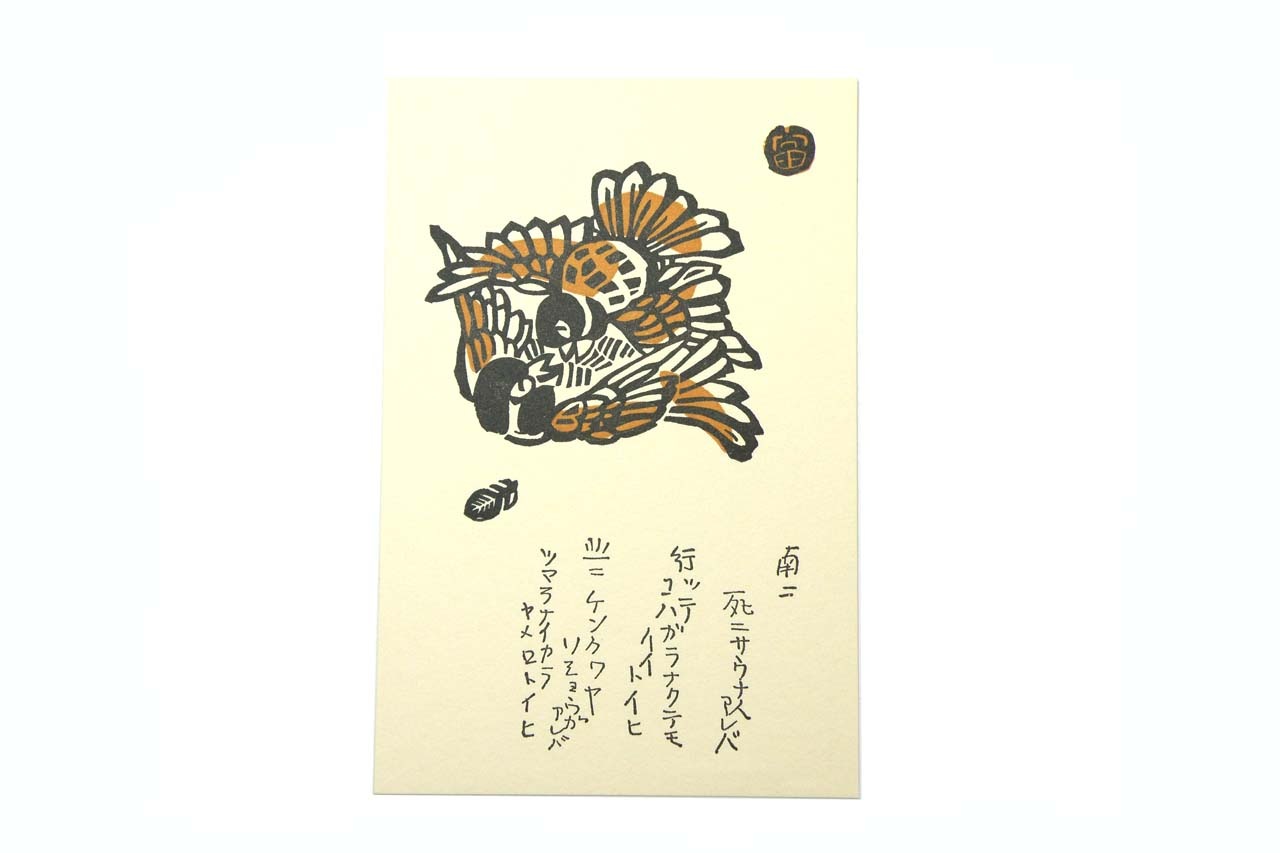 南ニ
死ニサウナ人
アレバ
行ッテ
コハガラナクテモ
イヽ
トイヒ
北ニケンクワヤ
ソショウガ
アレバ
ツマラナイカラ
ヤメロトイヒ